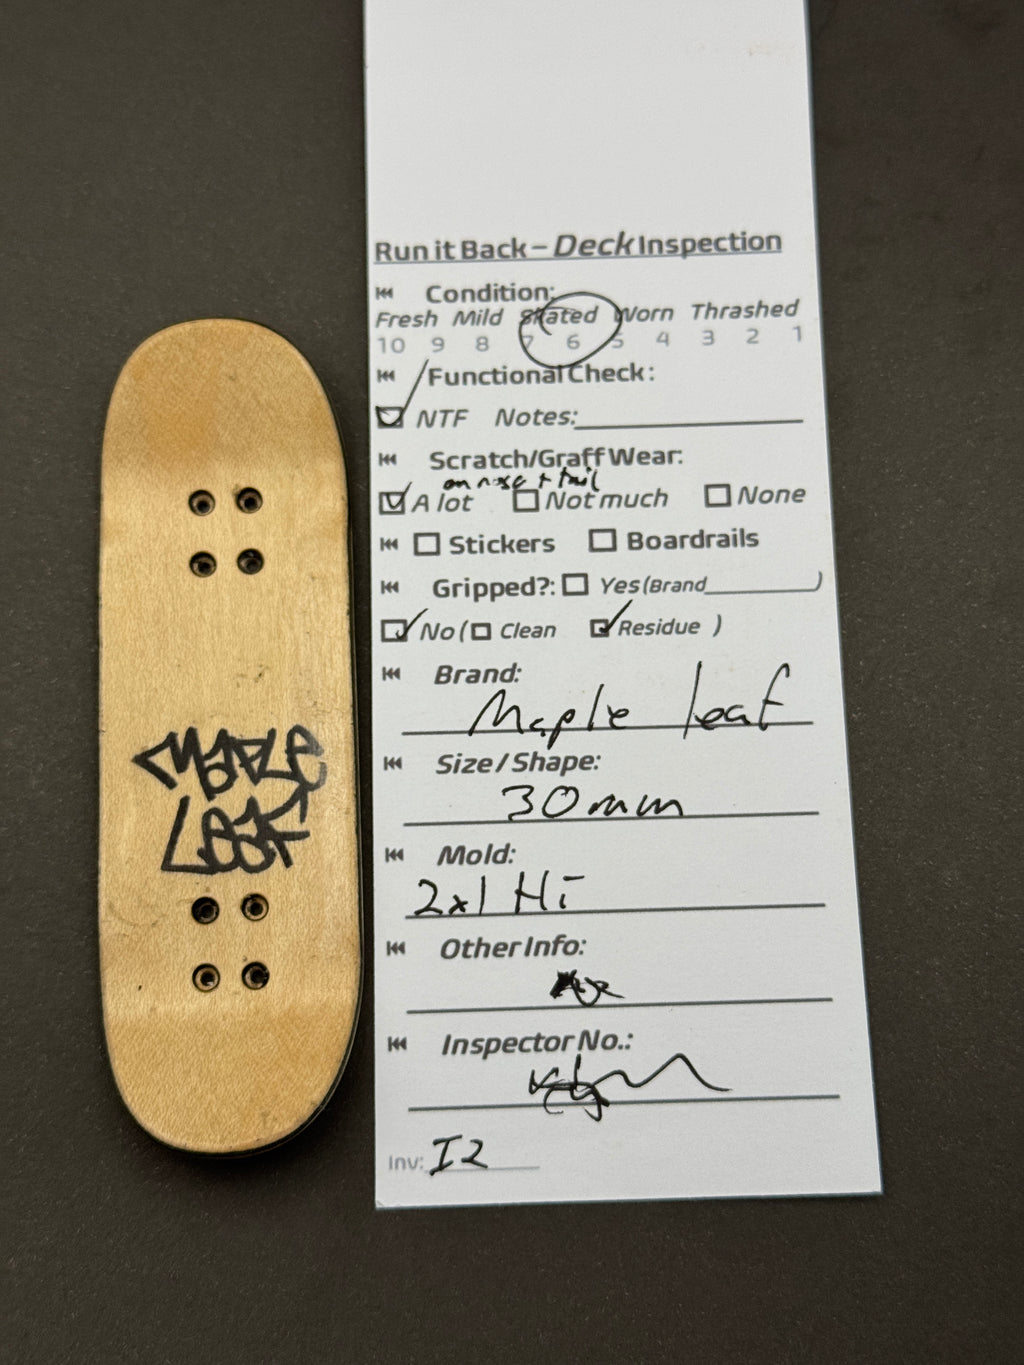 MAPLE
LEAF
Run it Back – Deck Inspection
Condition:
Fresh Mild Skated Worn Thrashed
10 9 8 7 6 5 4 3 2 1
Functional Check:
NTF Notes:
Scratch/Graff Wear:
on nose + tail
A lot Not much None
Stickers Boardrails
Gripped?: Yes (Brand )
No ( Clean Residue )
Brand:
Maple leaf
Size / Shape:
30mm
Mold:
2x1 Hi
Other Info:
Inspector No.:
Inv: I2